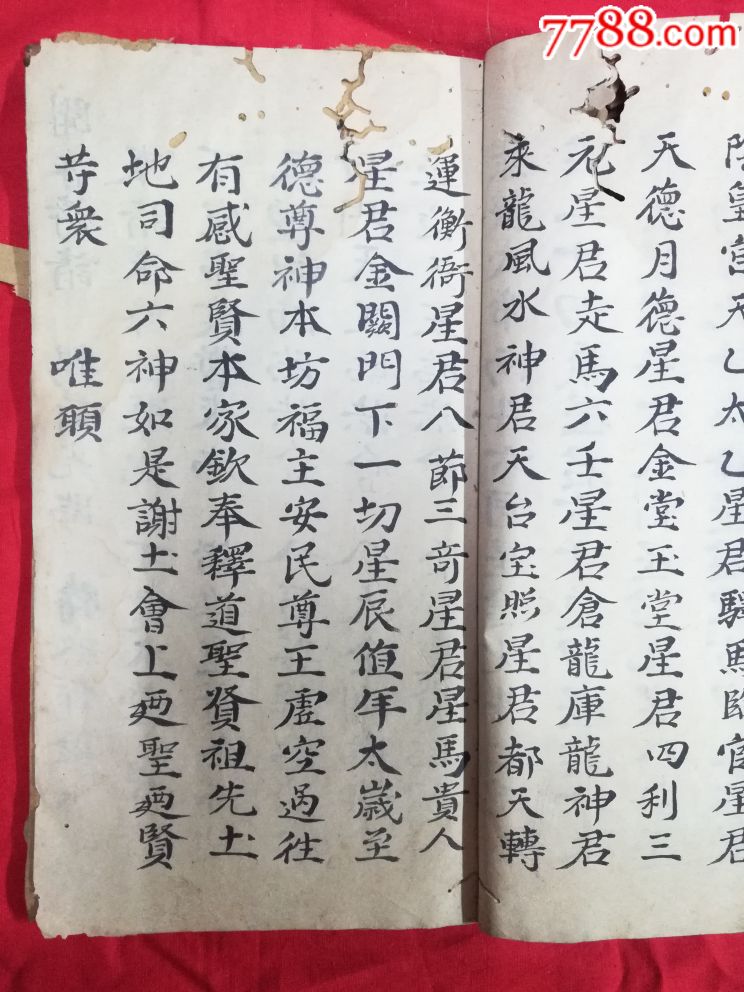 7788.com
陰皇宮天乙太乙星君驛馬臨官星君
天德月德星君金堂玉堂星君四利三
元星君走馬六壬星君倉龍庫龍神君
來龍風水神君天台宝照星君都天轉
運衡衙星君八節三奇星君星馬貴人
星君金闕門下一切星辰值年太歲至
德尊神本坊福主安民尊王虚空過往
有感聖賢本家欽奉釋道聖賢祖先土
地司命六神如是謝土會上迺聖迺賢
苛衆　唯願